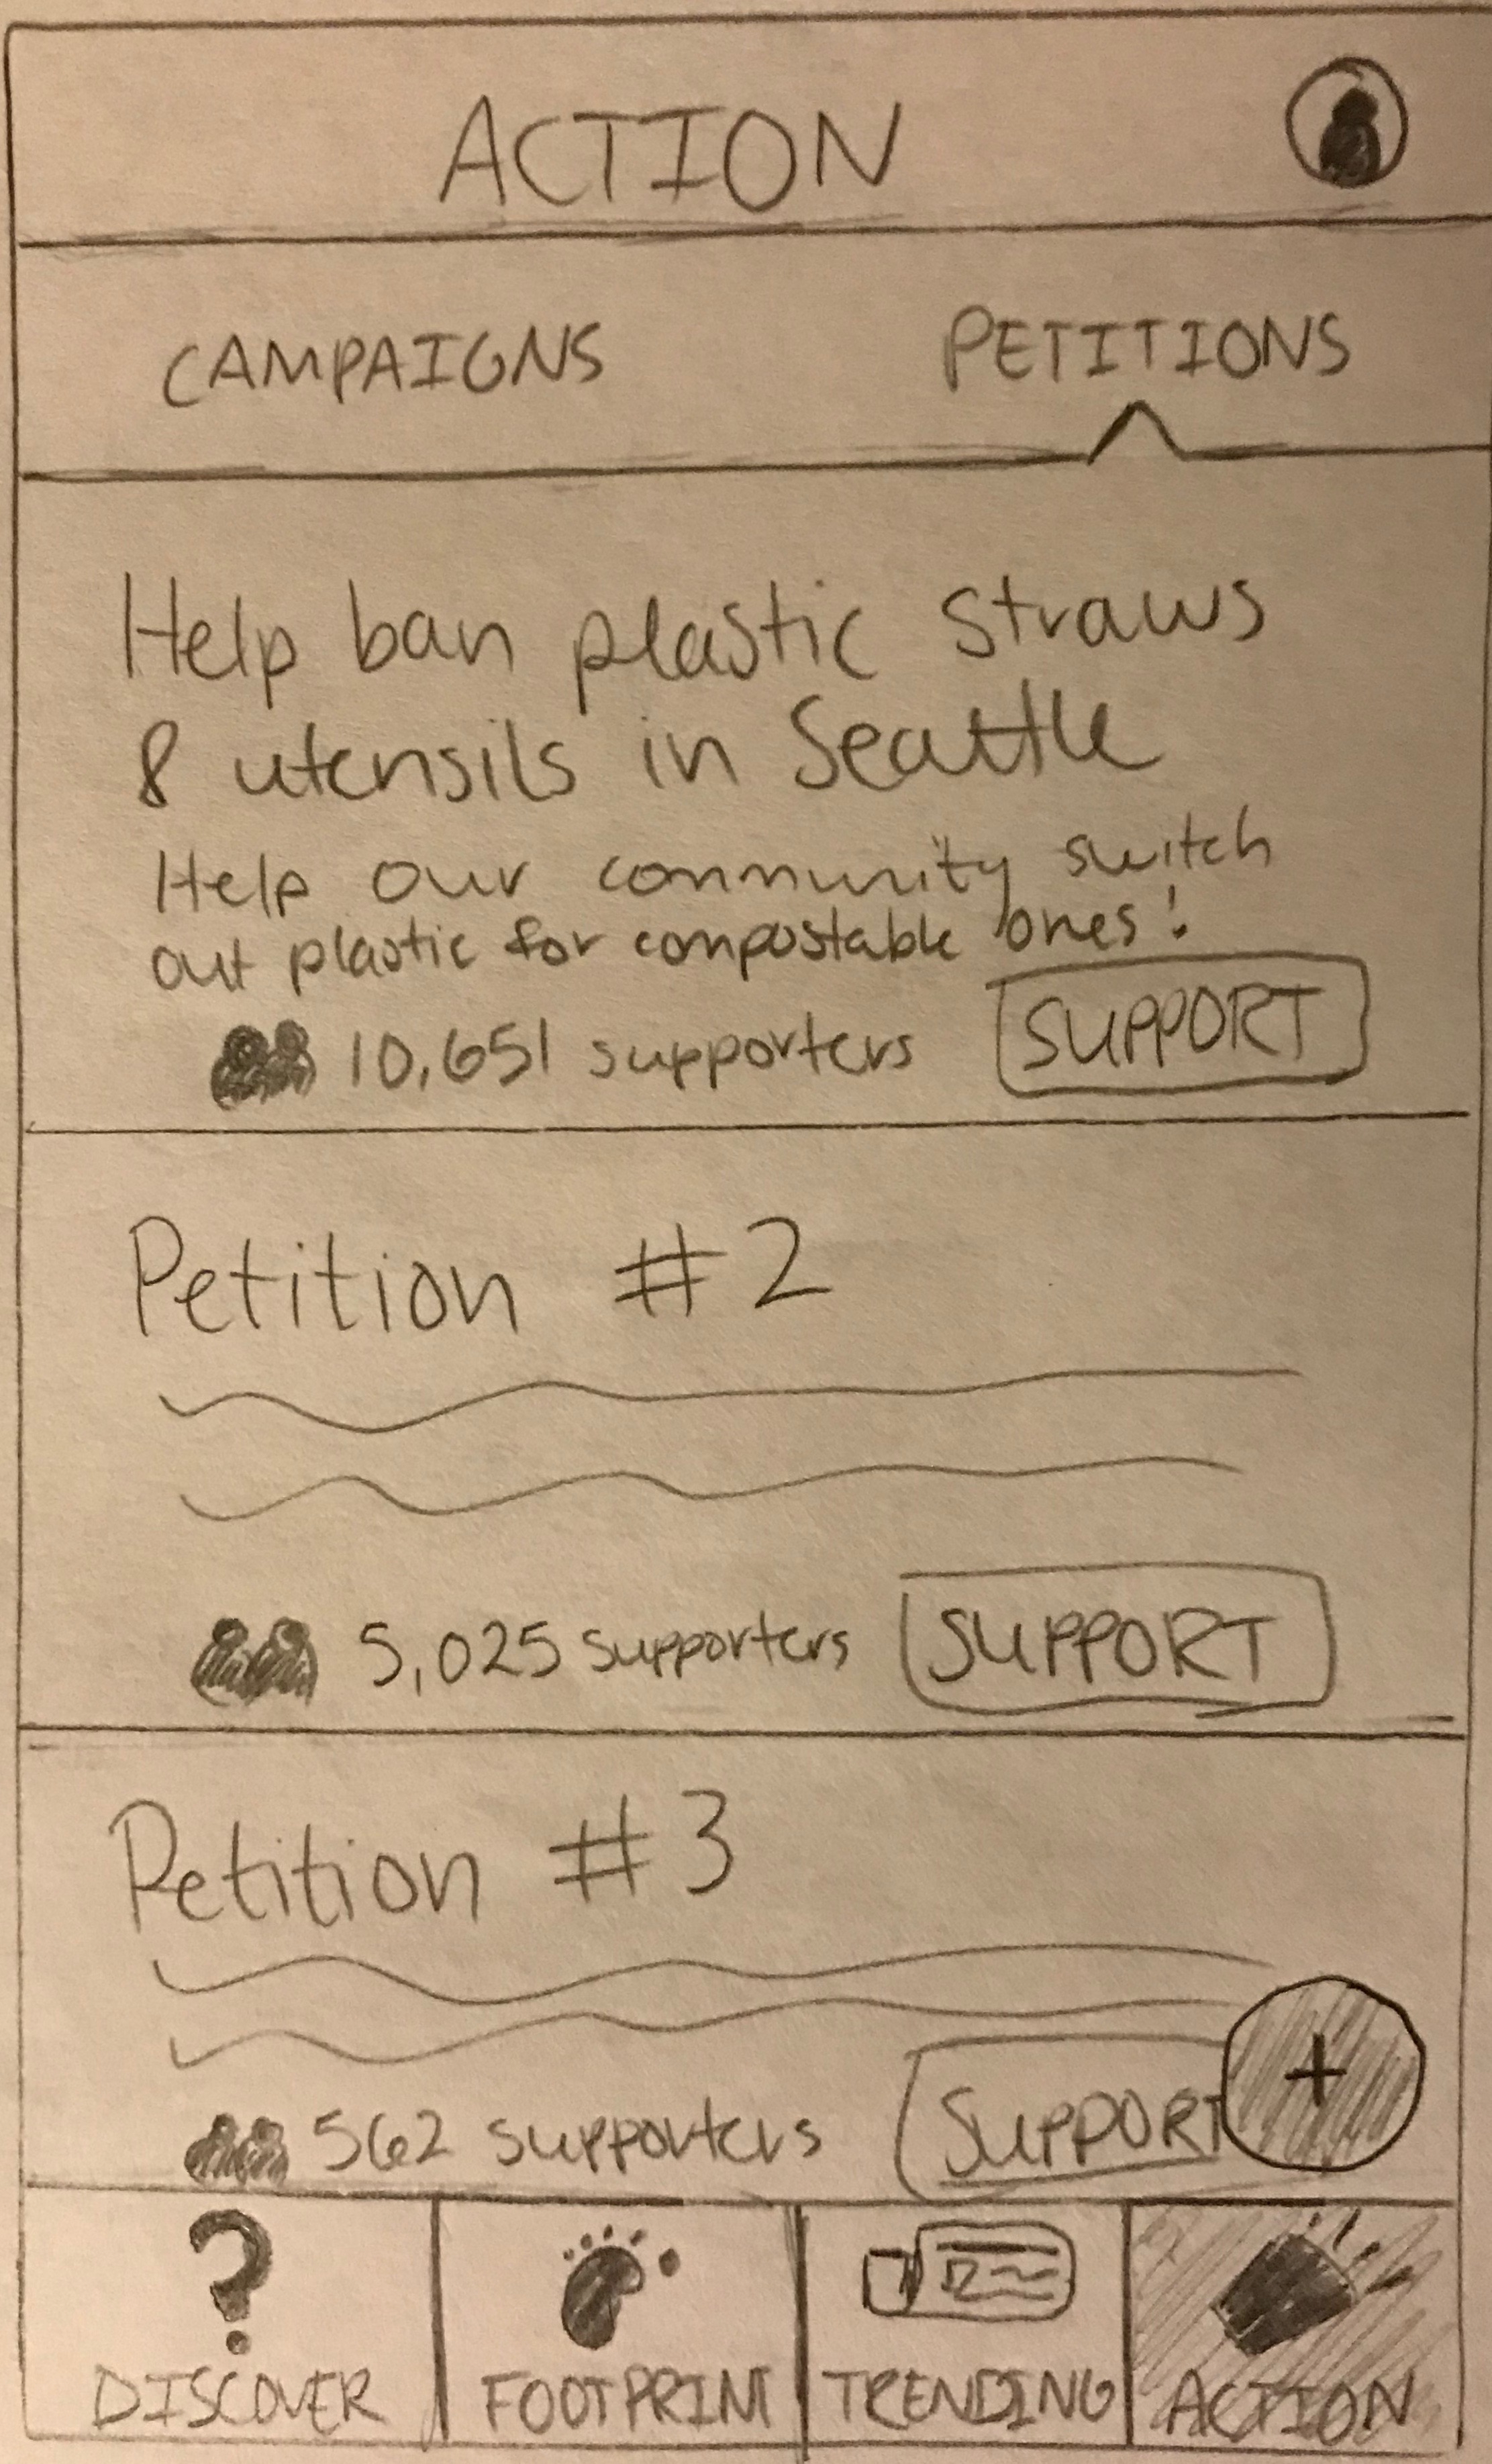 ACTION
CAMPAIGNS PETITIONS
Help ban plastic straws
& utensils in Seattle
Help our community switch
out plastic for compostable ones!
10,651 supporters SUPPORT
Petition #2
5,025 supporters SUPPORT
Petition #3
562 supporters SUPPORT
+
? 
DISCOVER FOOTPRINT TRENDING ACTION